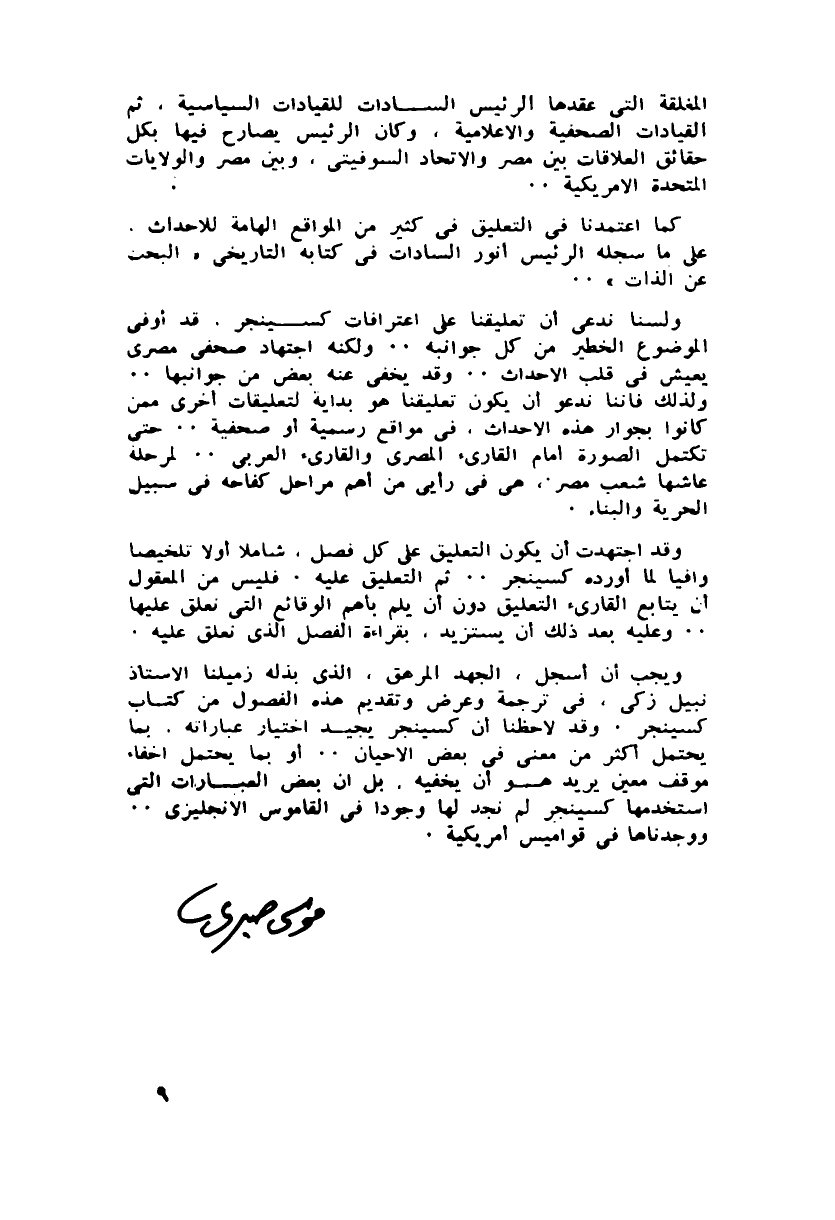 المغلقة التى عقدها الرئيس الســـادات للقيادات السياسية ، ثم
القيادات الصحفية والاعلامية ، وكان الرئيس يصارح فيها بكل
حقائق العلاقات بين مصر والاتحاد السوفيتى ، وبين مصر والولايات
المتحدة الامريكية ٠٠
كما اعتمدنا فى التعليق فى كثير من المواقع الهامة للاحداث .
على ما سجله الرئيس أنور السادات فى كتابه التاريخى « البحث
عن الذات » ٠٠
ولسنا ندعى أن تعليقنا على اعترافات كســـينجر . قد أوفى
الموضوع الخطير من كل جوانبه ٠٠ ولكنه اجتهاد صحفى مصرى
يعيش فى قلب الاحداث ٠٠ وقد يخفى عنه بعض من جوانبها ٠٠
ولذلك فاننا ندعو أن يكون تعليقنا هو بداية لتعليقات أخرى ممن
كانوا بجوار هذه الاحداث ، فى مواقع رسمية أو صحفية ٠٠ حتى
تكتمل الصورة أمام القارىء المصرى والقارىء العربى ٠٠ لمرحلة
عاشها شعب مصر ، هى فى رأيى من أهم مراحل كفاحه فى سبيل
الحرية والبناء ٠
وقد اجتهدت أن يكون التعليق على كل فصل ، شاملا أولا تلخيصا
وافيا لما أورده كسينجر ٠٠ ثم التعليق عليه ٠ فليس من المعقول
أن يتابع القارىء التعليق دون أن يلم بأهم الوقائع التى نعلق عليها
٠٠ وعليه بعد ذلك أن يستزيد ، بقراءة الفصل الذى نعلق عليه ٠
ويجب أن أسجل ، الجهد المرهق ، الذى بذله زميلنا الاستاذ
نبيل زكى ، فى ترجمة وعرض وتقديم هذه الفصول من كتــاب
كسينجر ٠ وقد لاحظنا أن كسينجر يجيــد اختيار عباراته . بما
يحتمل أكثر من معنى فى بعض الاحيان ٠٠ أو بما يحتمل اخفاء
موقف معين يريد هــو أن يخفيه . بل ان بعض العبــارات التى
استخدمها كسينجر لم نجد لها وجودا فى القاموس الانجليزى ٠٠
ووجدناها فى قواميس أمريكية ٠
موسى صبرى
٩